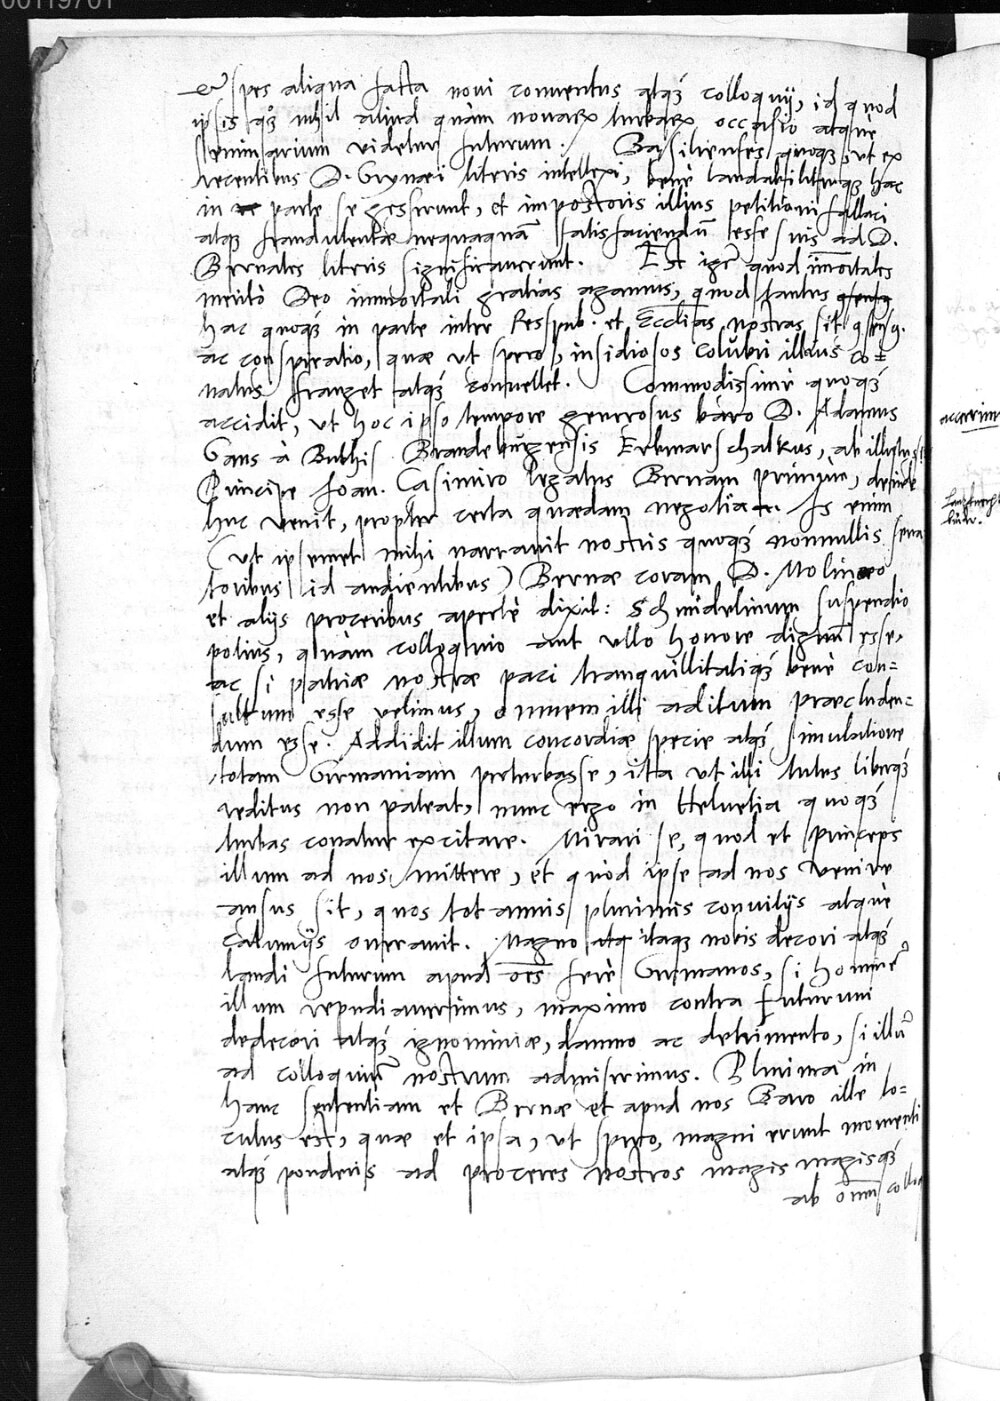 00119701
et spes aliqua facta noui conuentus atq́ꝫ colloquij, id quod
ipsis quoq́ꝫ nihil aliud quàm nouarū turbarū occasio atque
seminarium videtur futurum. Basilienses quoqꝫ, vt ex
recentibus D. Grynæi literis intellexi, benè laudabiliterqꝫ hac
in parte se gesserunt, et impostoris illius petitioni fallaci
atqꝫ fraudulentæ nequaquā satisfaciendū esse suis ad D.
Bernates literis significauerunt. Est igr̄ quod im̄ortales
meritò Deo immortali gratias agamus, quod tantus
hac quoq́ꝫ in parte inter Respub. et Ecclīas nostras sit
ac conspiratio, quæ vt spero, insidiosos Colubri illius co=
natus franget atq́ꝫ conuellet. Commodissimè quoq́ꝫ
accidit, vt hoc ipso tempore generosus baro D. Adamus
Gans à Butlis Brandeburgensis Erbmarschalkus, ab illustriss:
Principe Joan. Casimiro legatus Bernam primùm, deinde
huc venit, propter certa quædam negotia. Is enim
(vt ipsemet mihi narrauit nostris quoq́ꝫ nonnullis sena
toribus id audientibus) Bernæ coram D. Molinæo
et alijs proceribus apertè dixit: Schmidelinum suspendio
potius, quàm colloquio aut vllo honore dignū esse,
ac si patriæ nostræ paci tranquillitatiq́ꝫ benè con=
sultum esse velimus, omnem illi aditum præcluden=
dum esse. Addidit illum concordiæ specie atq́ꝫ simulatione
totam Germaniam perturbasse, ita vt illi tutus liberq́ꝫ
reditus non pateat, nunc ergo in Heluetia quoq́ꝫ
turbas conatur excitare. Mirari se, quod et princeps
illum ad nos mittere, et quòd ipse ad nos venire
ausus sit, quos tot annis plurimis conuitijs atque
calumnijs onerauit. Magno itaqꝫ nobis decori atq́ꝫ
laudi futurum apud oēs ferè Germanos, si hominē
illum repudiauerimus, maximo contra futurum
dedecori atq́ꝫ ignominiæ, damno ac detrimento, si illū
ad colloquiū nostrum admiserimus. Plurima in
hanc sententiam et Bernæ et apud nos Baro ille lo=
cutus est, quæ et ipsa, vt spero, magni erunt momenti
atq́ꝫ ponderis ad proceres nostros magis magisq́ꝫ
ab omni collo